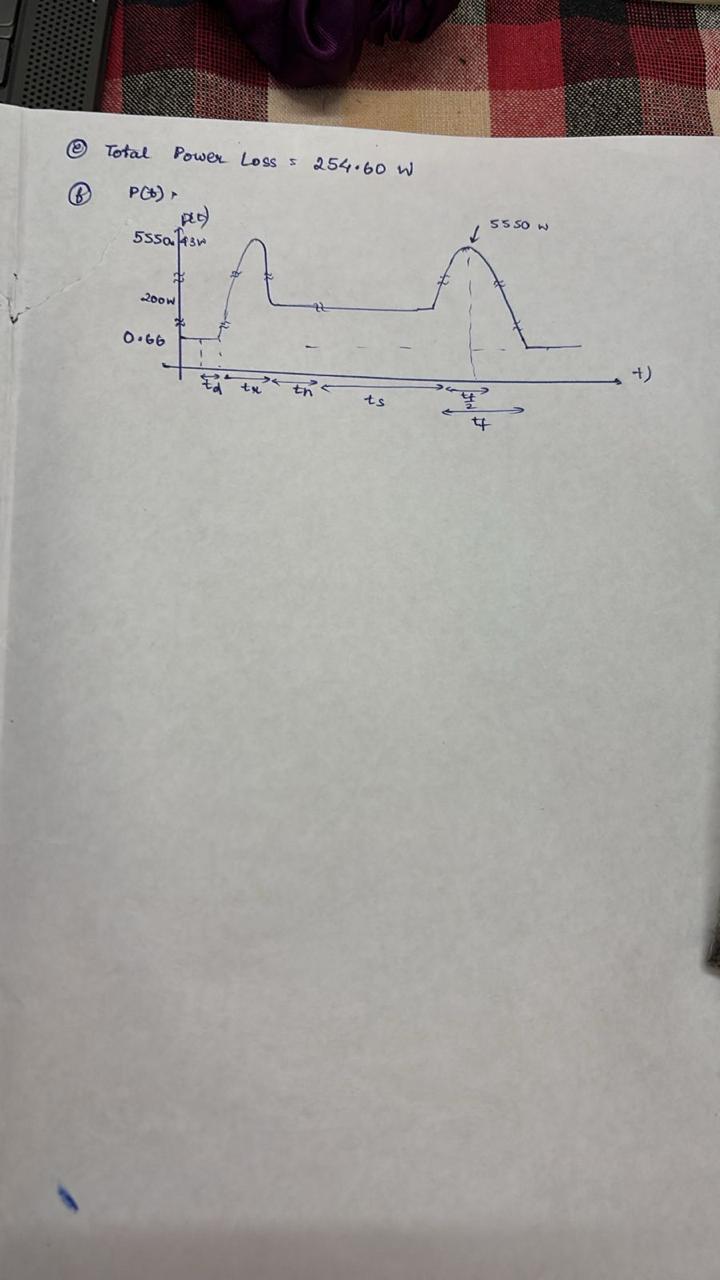 ⓔ Total Power Loss = 254.60 W
ⓕ P(t) :
P(t)
5550.43W
5550 W
200W
0.66
t)
td tr tn ts tf/2
tf